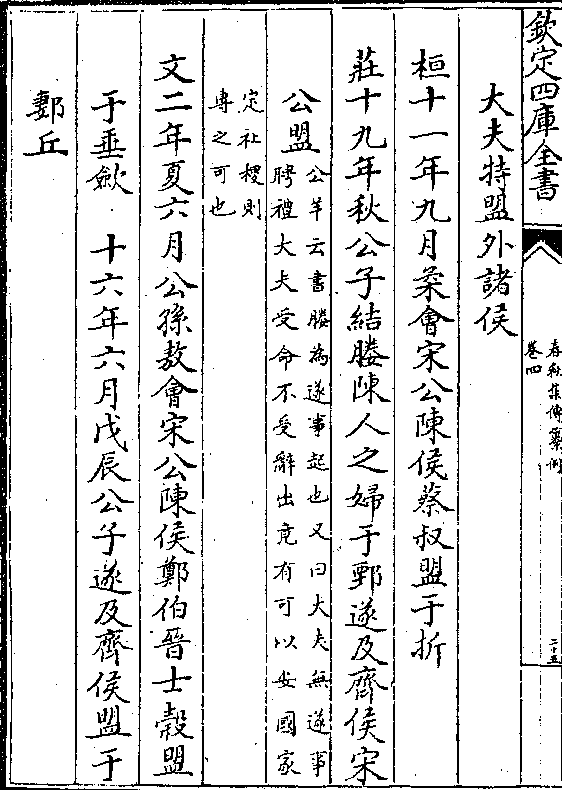 欽定四庫全書
春秋集傳纂例
卷四
二十五
大夫特盟外諸侯
桓十一年九月柔會宋公陳侯蔡叔盟于折
莊十九年秋公子結媵陳人之婦于鄄遂及齊侯宋
公盟
公羊云書媵為遂事起也又曰大夫無遂事
聘禮大夫受命不受辭出竟有可以安國家
定社稷則
専之可也
文二年夏六月公孫敖會宋公陳侯鄭伯晉士縠盟
于垂歛 十六年六月戊辰公子遂及齊侯盟于
郪丘